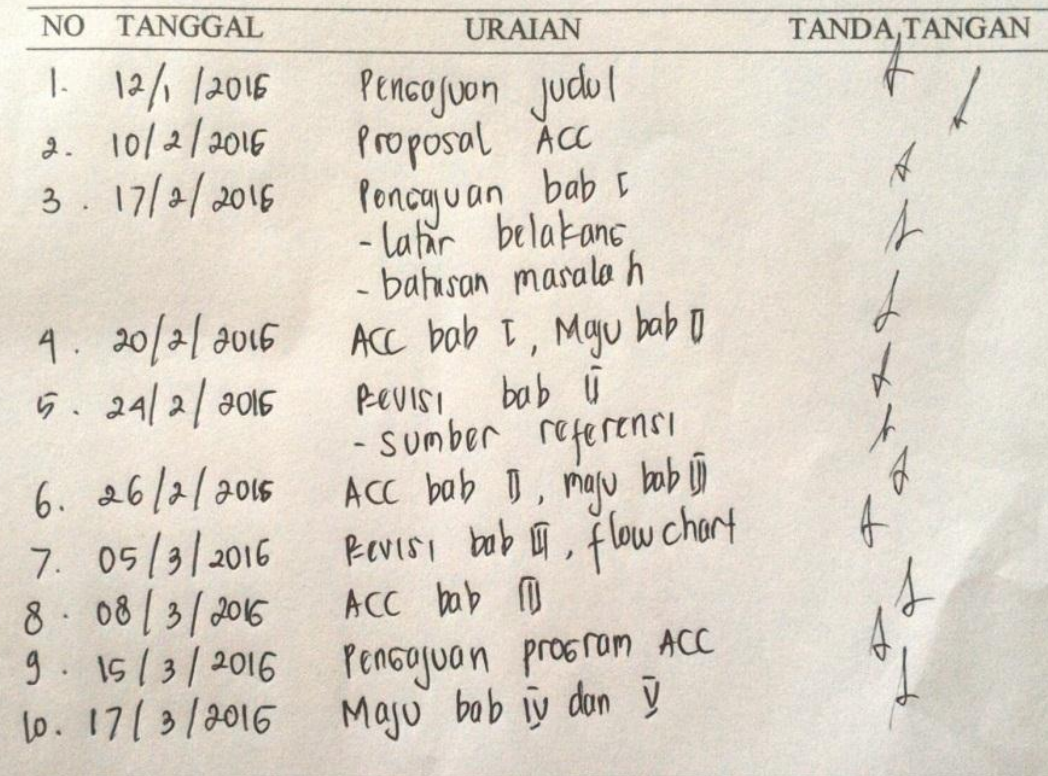 NO TANGGAL URAIAN TANDA TANGAN
1. 12/1/2016 Pengajuan judul
2. 10/2/2016 Proposal ACC
3. 17/2/2016 Pengajuan bab I
- latar belakang
- batasan masalah
4. 20/2/2016 ACC bab I, Maju bab II
5. 24/2/2016 Revisi bab II
- sumber referensi
6. 26/2/2016 ACC bab II, maju bab III
7. 05/3/2016 Revisi bab III, flowchart
8. 08/3/2016 ACC bab III
9. 15/3/2016 Pengajuan program ACC
10. 17/3/2016 Maju bab IV dan V